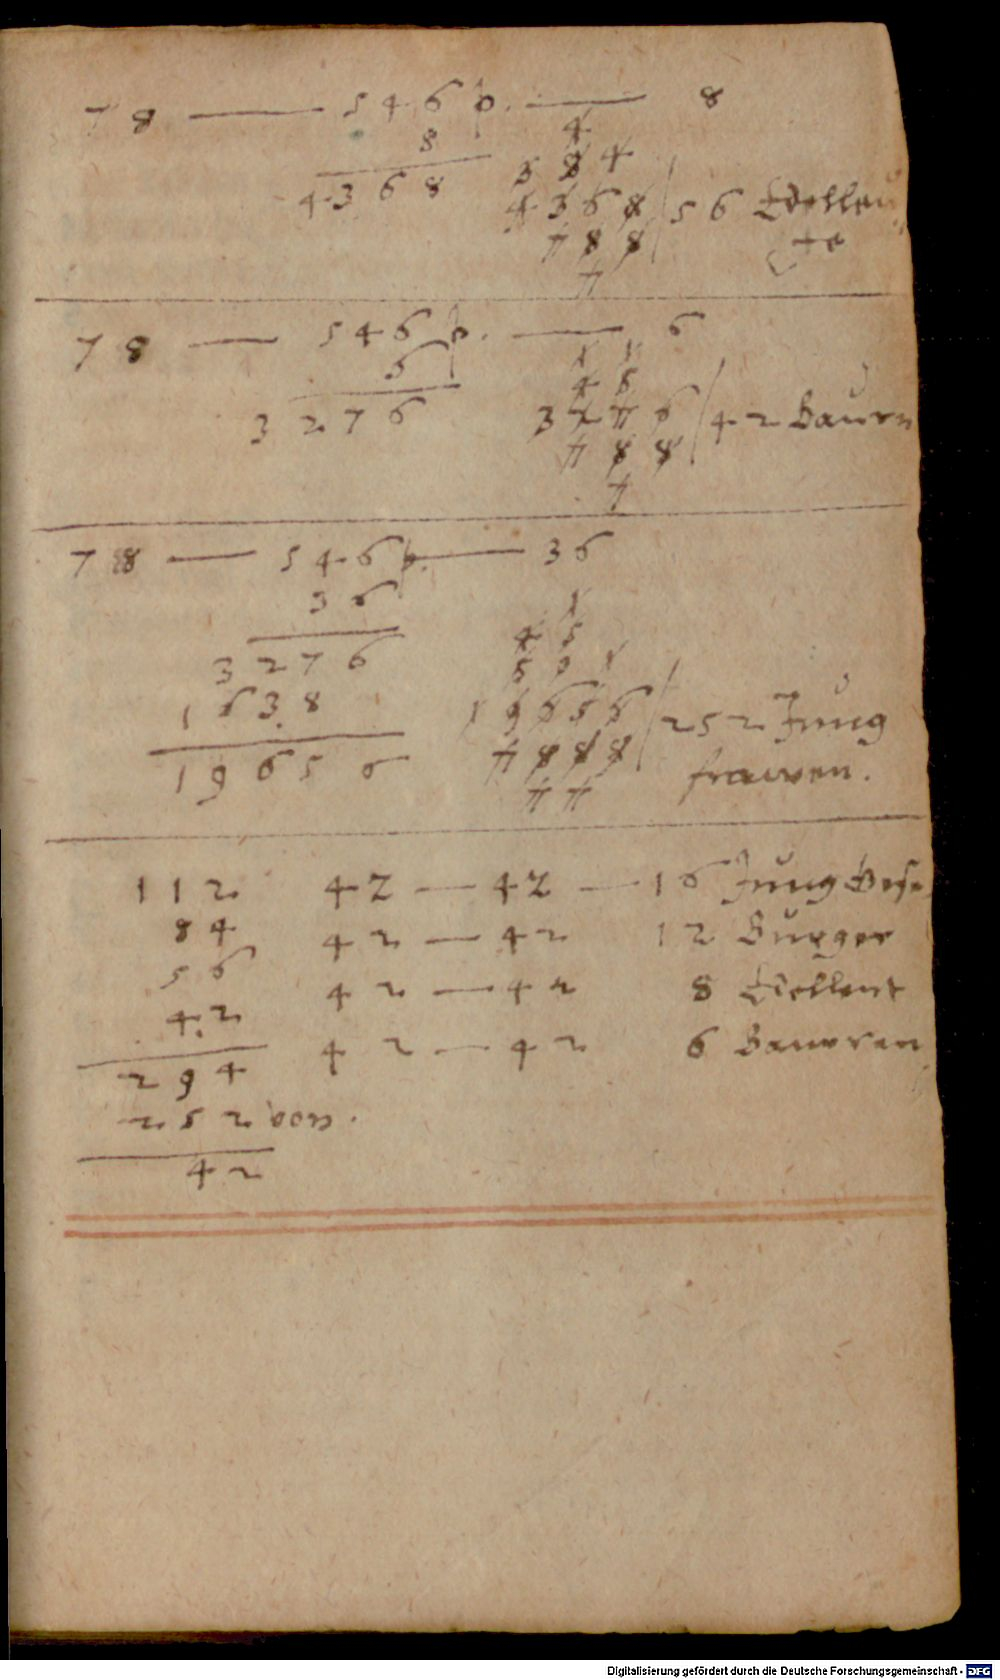 78 — 546 p. — 8
8
4
3 8 4
4368
4368 / 56 Edelleu
88
te
78 — 546 p. — 6
6
1 1
4 5
3276
3276 / 42 Baurn
7 8 8
7
78 — 546 p. — 36
36
1
4 5
3276
1638
19656 / 252 Jung
7 8 8 8
19656
7 7
frawen.
112 42 — 42 — 16 Jung
84 42 — 42 12 Burger
56 42 — 42 8 Edelleut
42 42 — 42 6 Bauren
294
252 von.
42
Digitalisierung gefördert durch die Deutsche Forschungsgemeinschaft - DFG